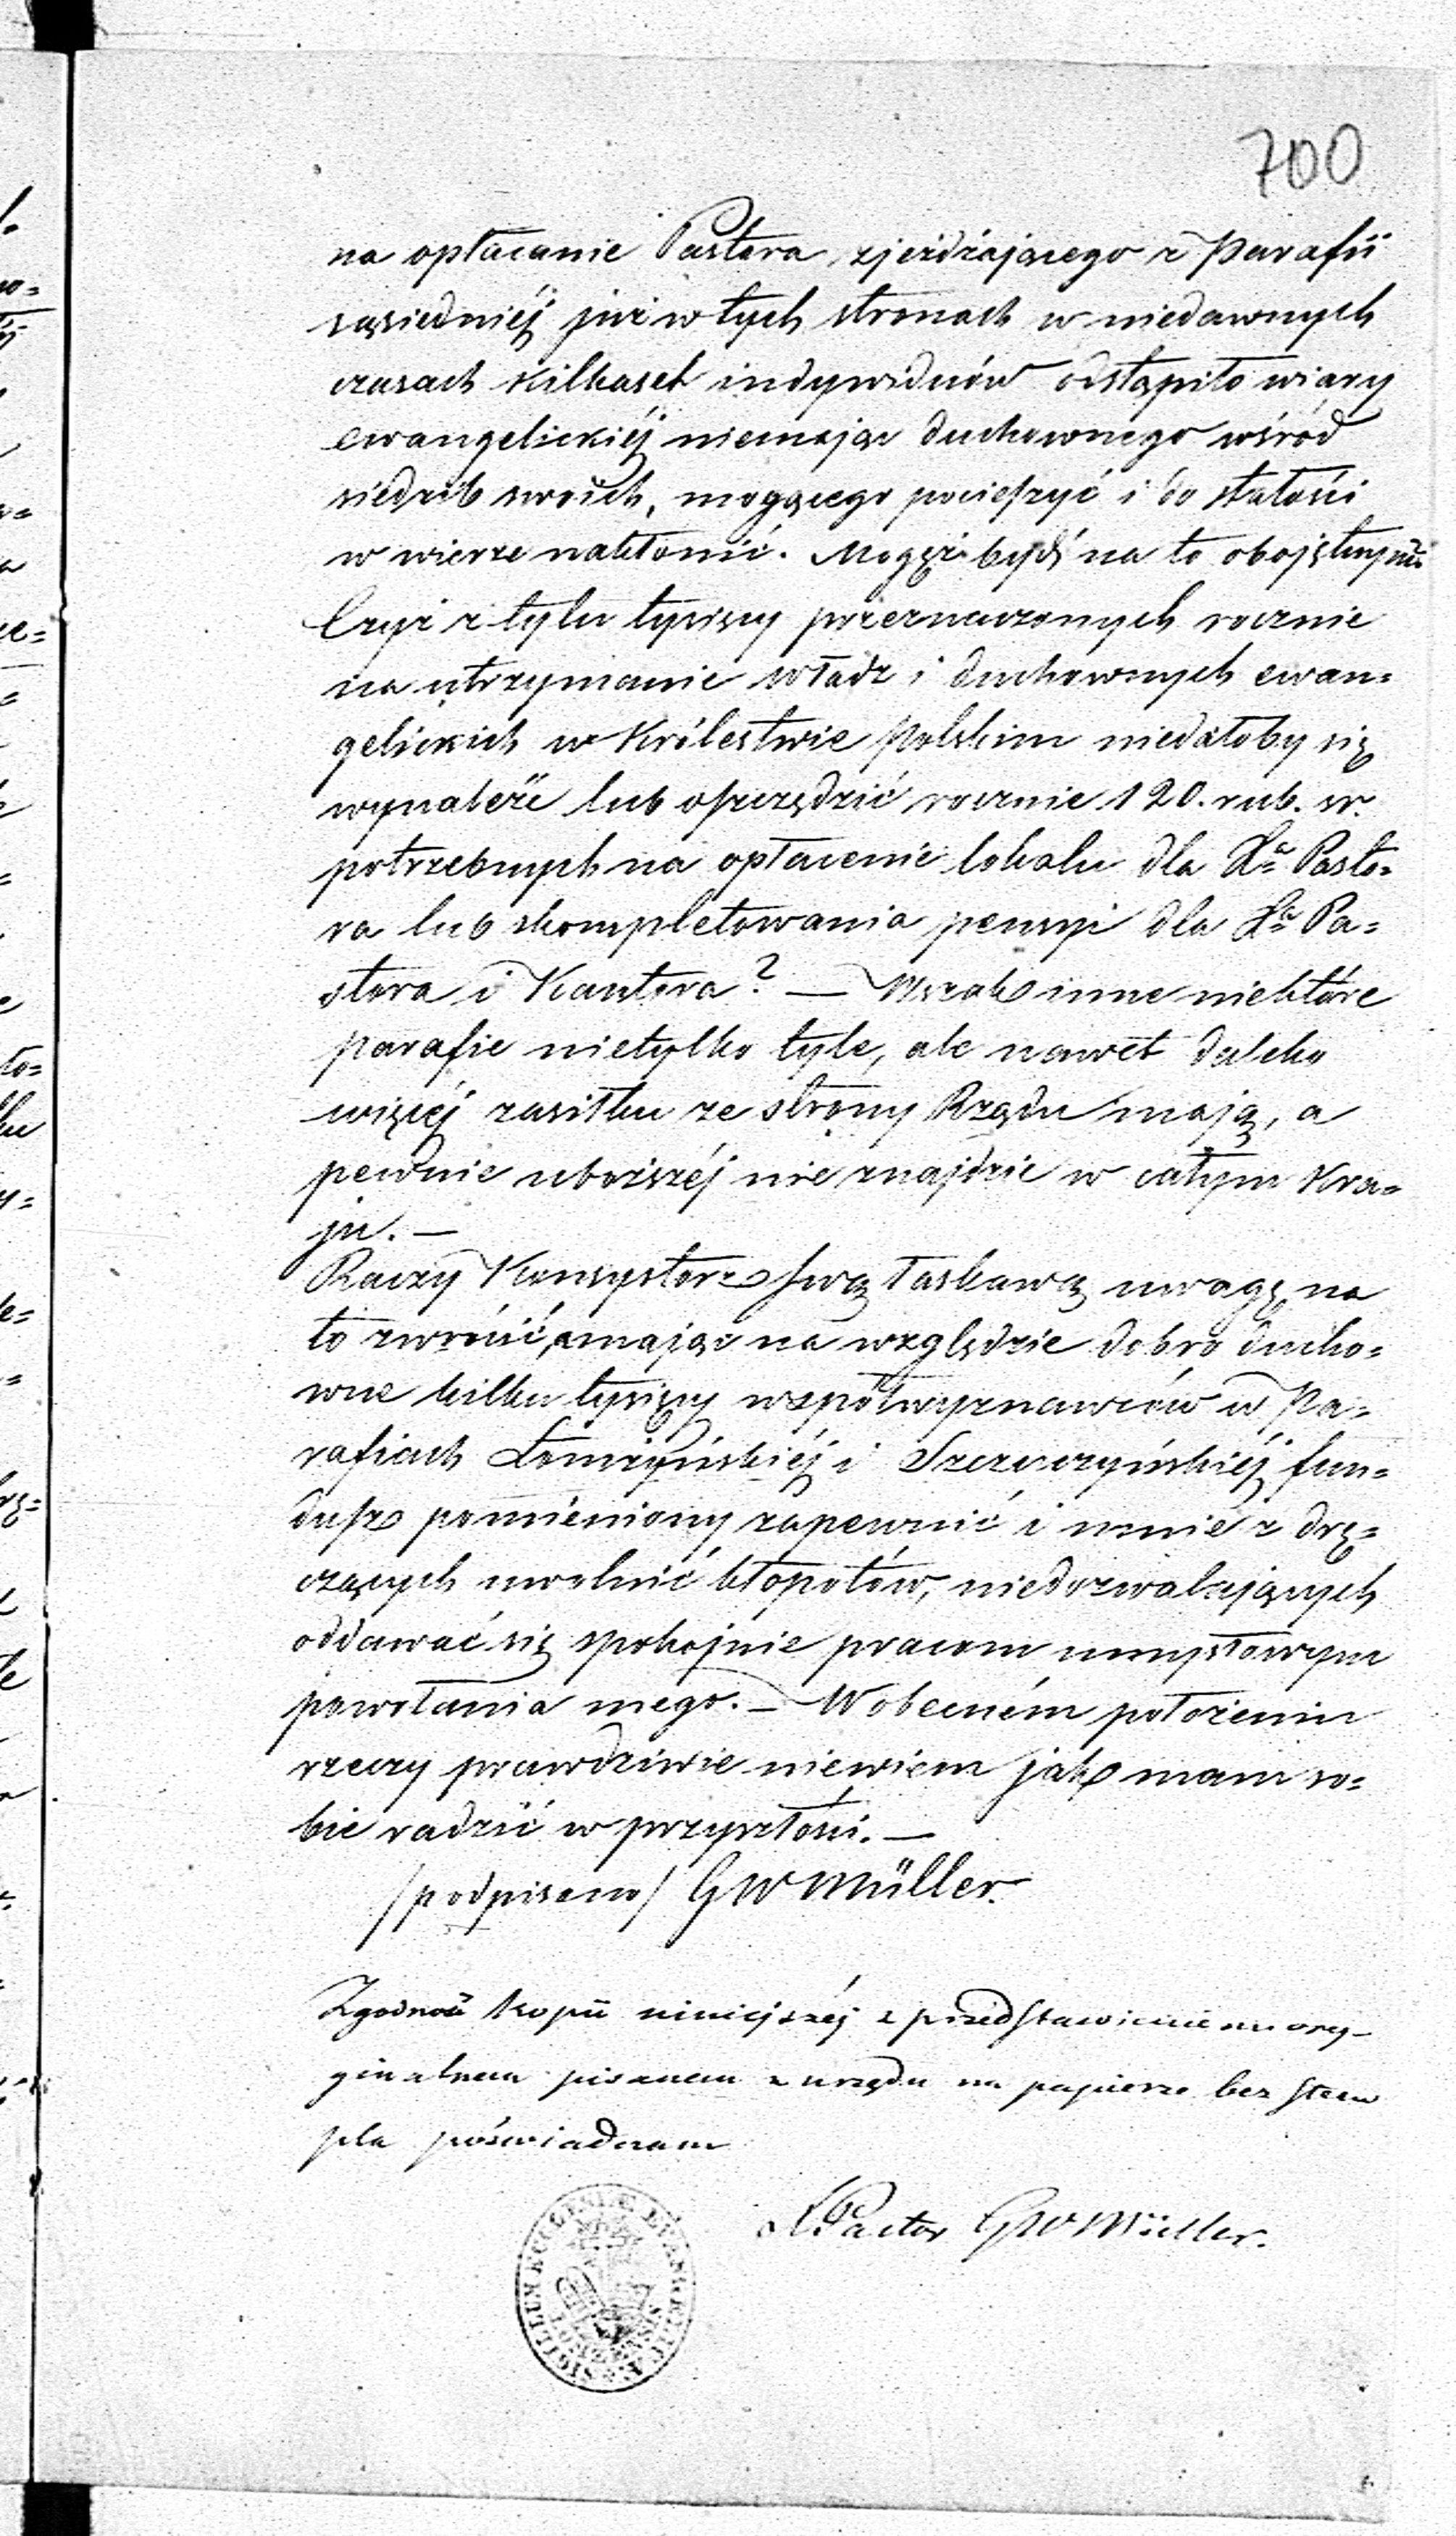 700
na opłacanie Pastora, zjeżdżającego z Parafii
sąsiedniej już w tych stronach w niedawnych
czasach kilkaset indywiduów odstąpiło wiary
ewangelickiéj niemając duchownego wśród
siedzib swoich, mogącego pocieszyć i do stałości
w wierze nakłonić. Mogęż bydź na to obojętnym?
Czyż z tylu tysięcy przeznaczonych rocznie
na utrzymanie władz i duchownych ewan=
gelickich w Królestwie Polskim niedałoby się
wynaleźć lub oszczędzić rocznie 120. rub. sr.
potrzebnych na opłacenie lokalu dla Xa Pasto=
ra lub skompletowania pensyi dla Xa Pa=
stora i Kantora? — Wszak inne niektóre
parafie nietylko tyle, ale nawet daleko
więcéj zasiłku ze strony Rządu mają, a
pewnie uboższéj nie znajdzie w całym Kra=
ju. —
Raczy Konsystorz swą łaskawą uwagę na
to zwrócić, a mając na względzie dobro ducho=
wne kilku tysięcy współwyznawców w Pa=
rafiach Łomżyńskiéj i Szczuczyńskiéj fun=
dusz pomieniony zapewnić i mnie z drę=
czących uwolnić kłopotów, niedozwalających
oddawać się spokojnie pracom umysłowym
powołania mego. — W obecném położeniu
rzeczy prawdziwie niewiem jak mam so=
bie radzić w przyszłości. —
/podpisano/ GWMüller.
Zgodność kopii niniejszéj z przedstawieniem ory-
ginalnem pisanem z urzędu na papierze bez stem
pla poświadczam
X. Pastor GWMüller.
SIGILLUM ECCLESIAE EVANGELICAE